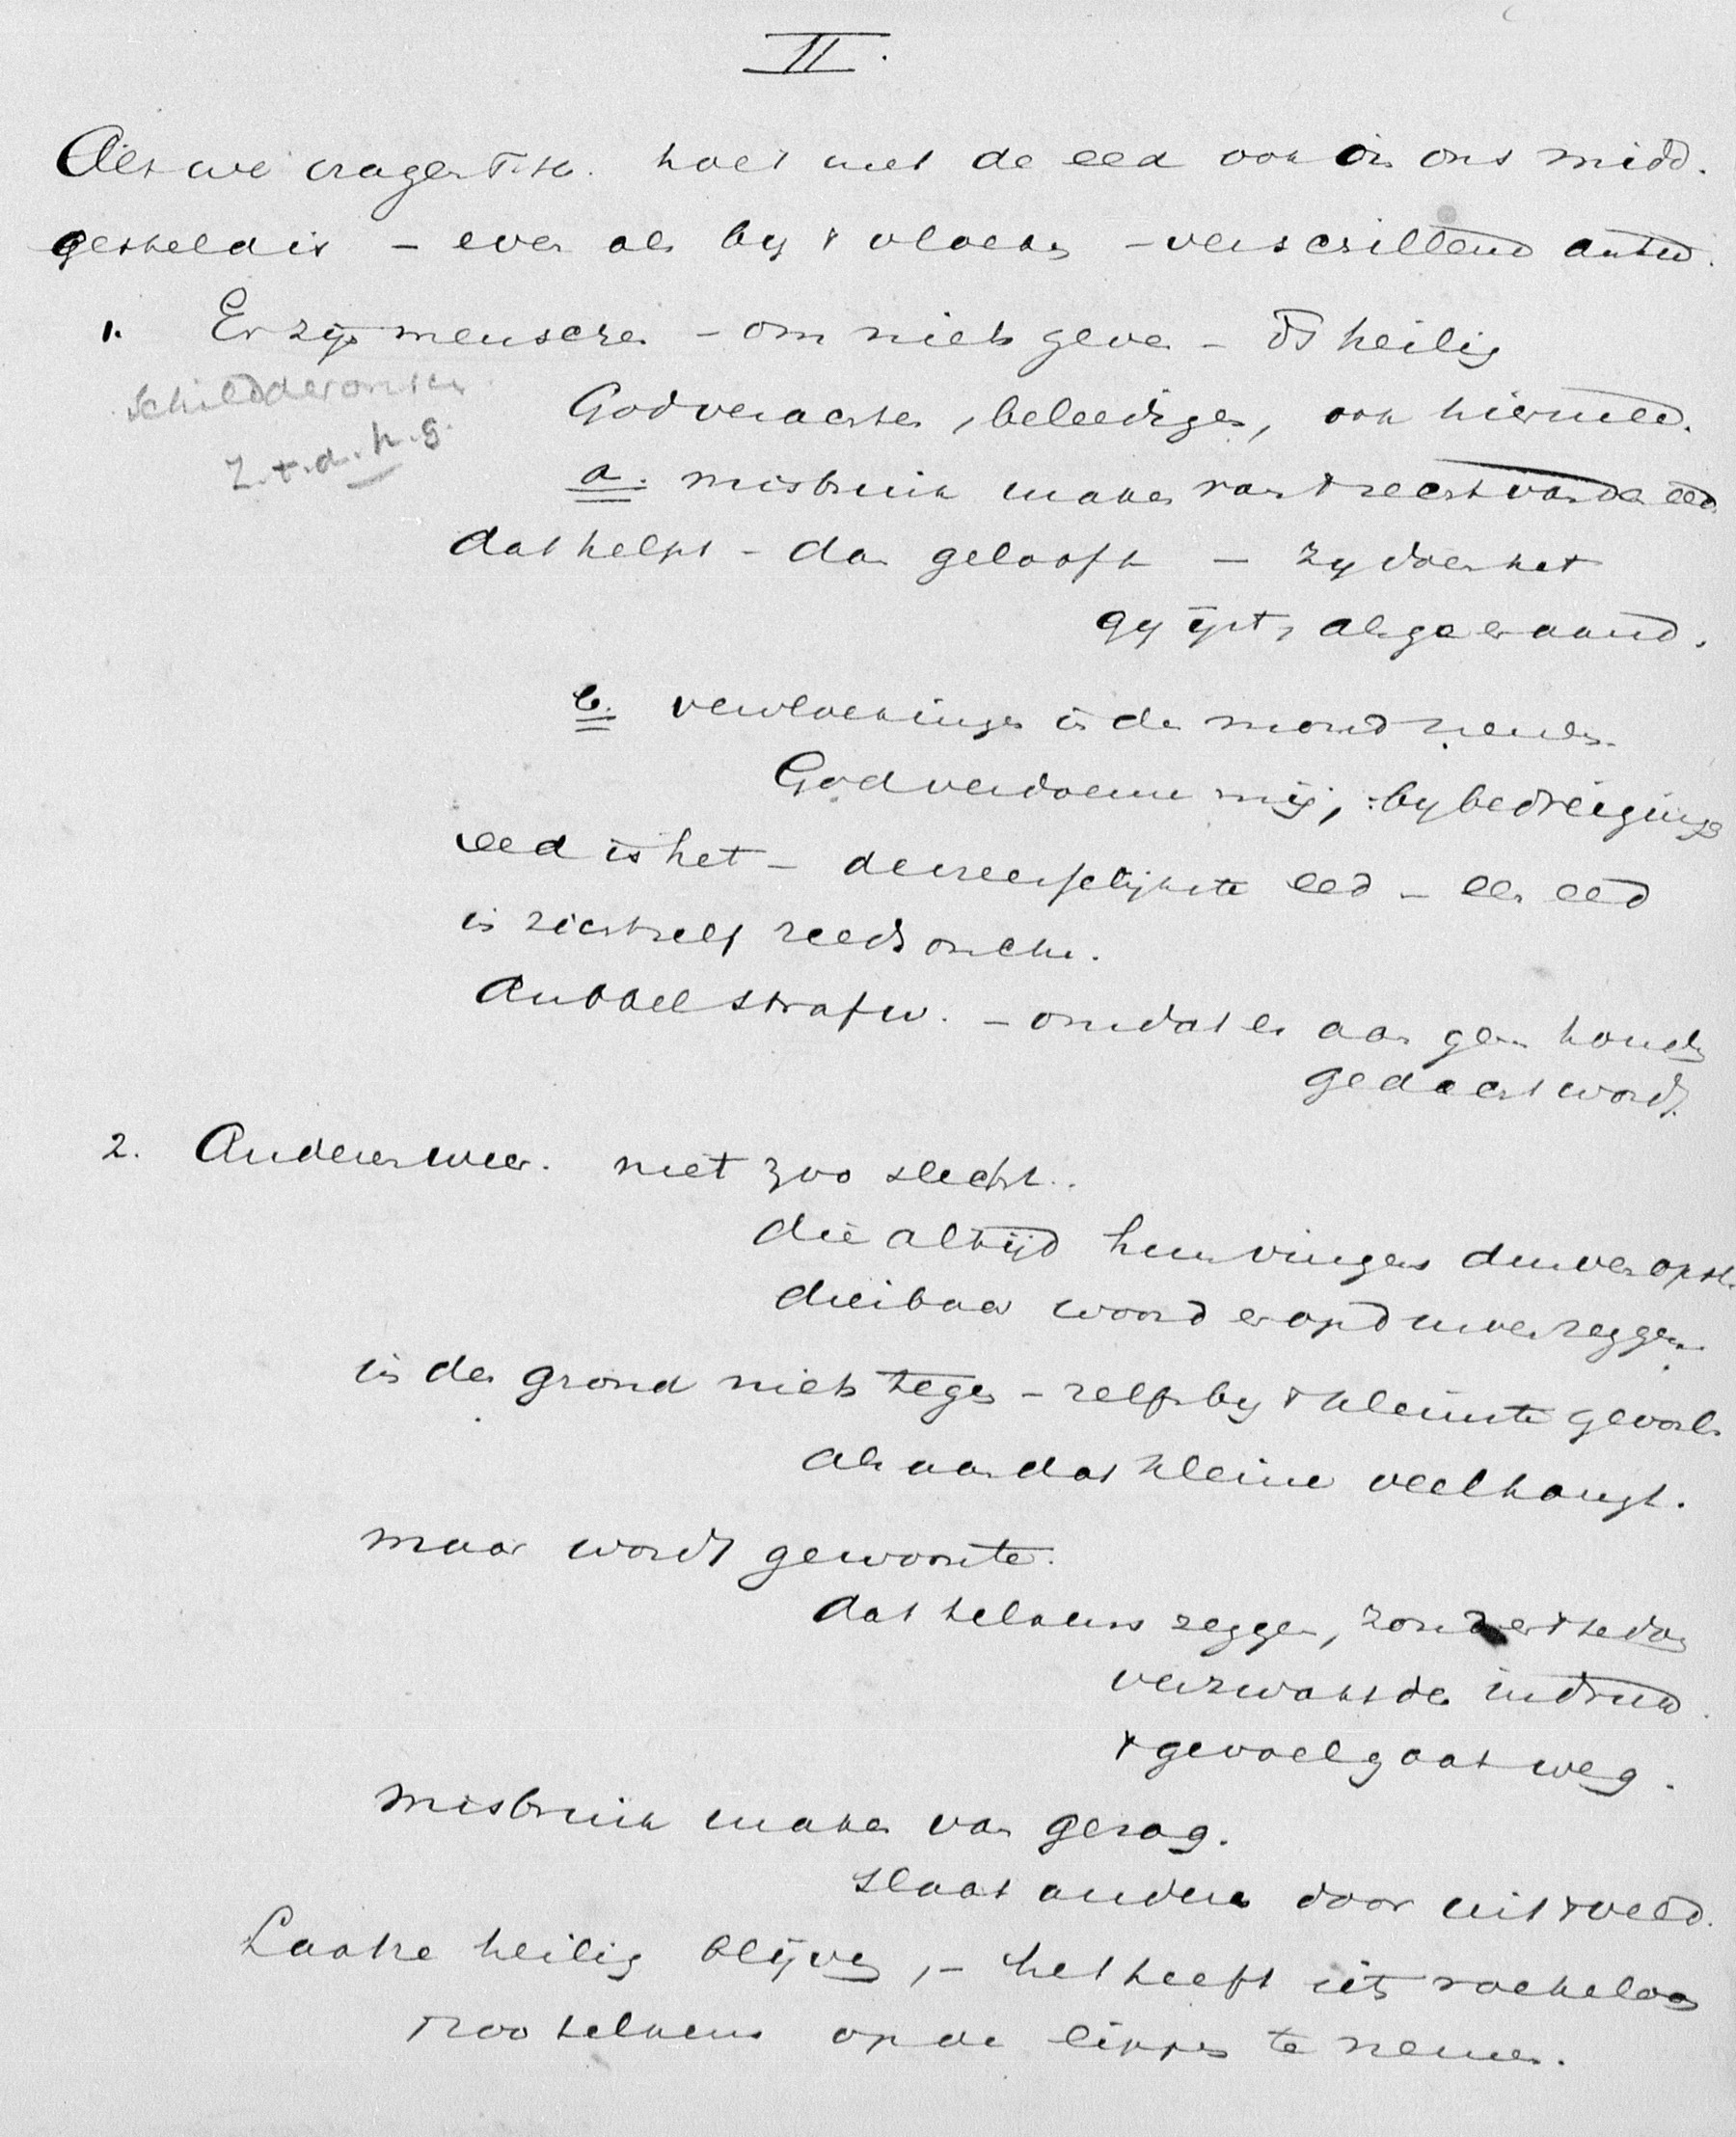 II.
Als we vragen T.H. hoe't met de eed ook in ons midd.
gesteld is – even als by 't vloeken – verschillend antw.
1. Er zijn menschen – om niets geven – God heilig
Godverachten, beleedigen, ook hiermed.
Z.t.d.h.g.
a. misbruik maken van 't recht van den eed
dat helpt – dan gelooft – zy doen het
gy ijst als ge er aan
b. vervloekingen in den mond nemen
God verdoeme mij, by bedreiging
eed is het – de vreeselijkste eed – een eed
in zichzelf reeds
dubbel strafw. – omdat er aan geen houden
gedacht wordt.
2. Anderen weer. niet zoo slecht.
die altijd hun vingers durven opst.
dierbaar woord er op durven zeggen.
in den grond niets tegen – zelfs by 't kleinste geval
als aan dat kleine veel hangt.
maar wordt gewoonte.
dat telkens zeggen, zonder 't te doen
verzwakt den indruk.
't gevoel gaat weg.
misbruik maken van gezag.
slaat anderen door uit 't veld.
Laat 't heilig blijven, – het heeft iets roekeloos
't zoo telkens op de lippen te nemen.